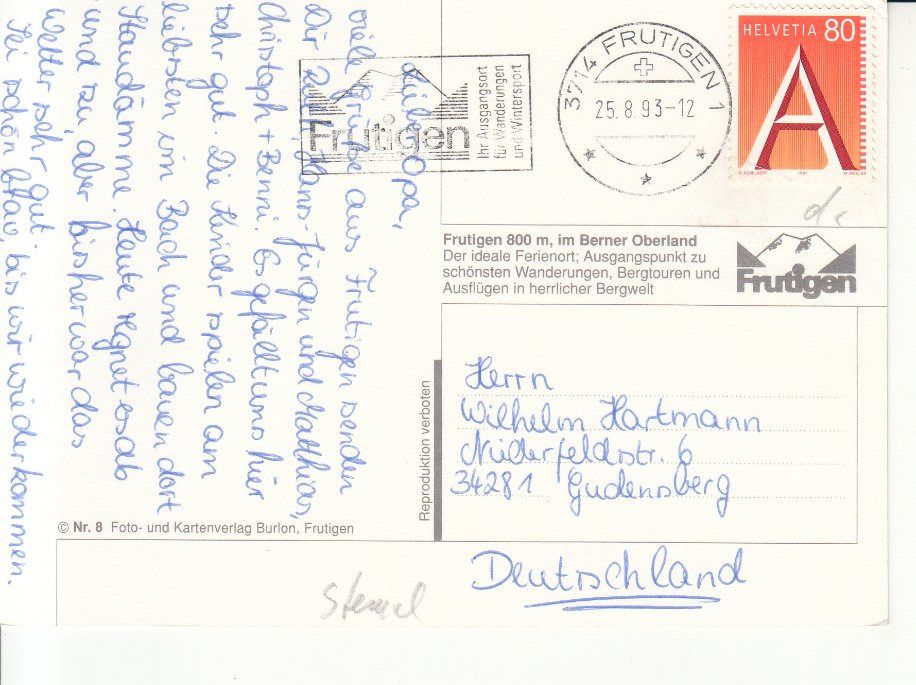 Lieber Opa,
viele Grüße aus Frutigen senden
Dir Hans-Jürgen und Matthias,
Christoph + Benni. Es gefällt uns hier
sehr gut. Die Kinder spielen am
liebsten im Bach und bauen dort
Staudämme. Heute regnet es ab
und zu aber bisher war das
Wetter sehr gut.
Sei schön brav, bis wir wieder kommen.
Frutigen
Ihr Ausgangsort
für Wanderungen
und Wintersport
3714 FRUTIGEN 1
25.8.93-12
HELVETIA 80
A
1993
M. KELLER
Frutigen 800 m, im Berner Oberland
Der ideale Ferienort; Ausgangspunkt zu
schönsten Wanderungen, Bergtouren und
Ausflügen in herrlicher Bergwelt
Frutigen
Reproduktion verboten
Herrn
Wilhelm Hartmann
Niederfeldstr. 6
34281 Gudensberg
Deutschland
© Nr. 8 Foto- und Kartenverlag Burlon, Frutigen